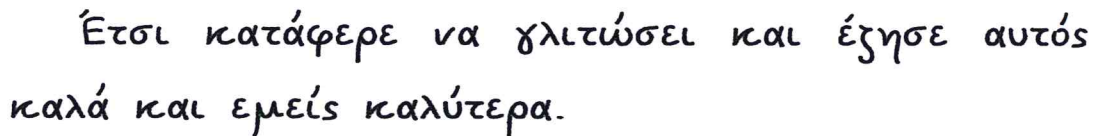 Έτσι κατάφερε να γλιτώσει και έζησε αυτός
καλά και εμείς καλύτερα.